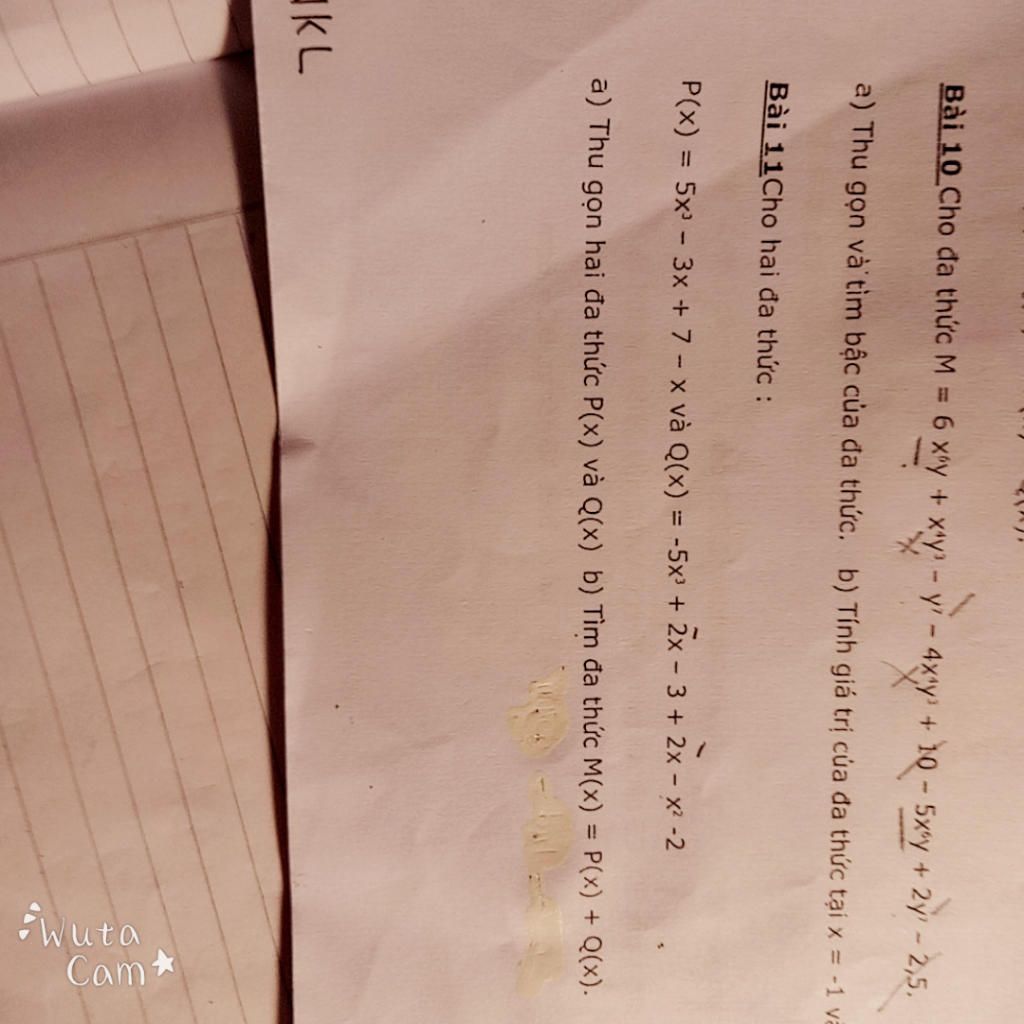 Bài 10 Cho đa thức M = 6 x⁶y + x⁴y³ – y⁷ – 4x⁴y³ + 10 – 5x⁶y + 2y⁷ – 2,5.
a) Thu gọn và tìm bậc của đa thức. b) Tính giá trị của đa thức tại x = -1
Bài 11 Cho hai đa thức :
P(x) = 5x³ – 3x + 7 – x và Q(x) = -5x³ + 2x – 3 + 2x – x² -2
a) Thu gọn hai đa thức P(x) và Q(x) b) Tìm đa thức M(x) = P(x) + Q(x).
KL
Wuta
Cam